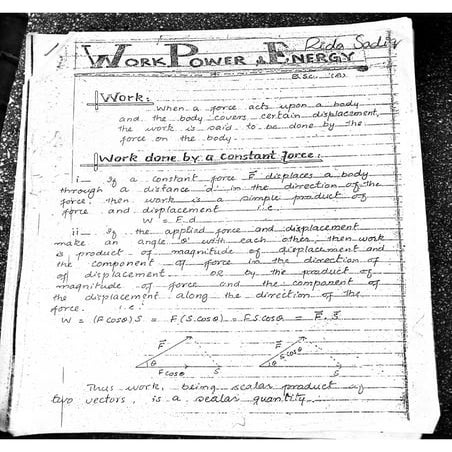 Rida Sadiq
WORK POWER & ENERGY
B.Sc. (A)
Work:
When a force acts upon a body
and the body covers certain displacement,
the work is said to be done by the
force on the body.
Work done by a constant force:
i_ If a constant force F displaces a body
through a distance 'd' in the direction of the
force, then work is a simple product of
force and displacement i.e.
W = F.d
ii_ If the applied force and displacement
make an angle 'θ' with each other, then work
is product of magnitude of displacement and
the component of force in the direction of
of displacement. OR by the product of
magnitude of force and the component of
the displacement along the direction of the
force. i.e:
W = (F cosθ) S = F (S cosθ) = F S cosθ = F. S
F F
θ θ S cosθ
F cosθ S S
Thus work, being scalar product of
two vectors, is a scalar quantity.